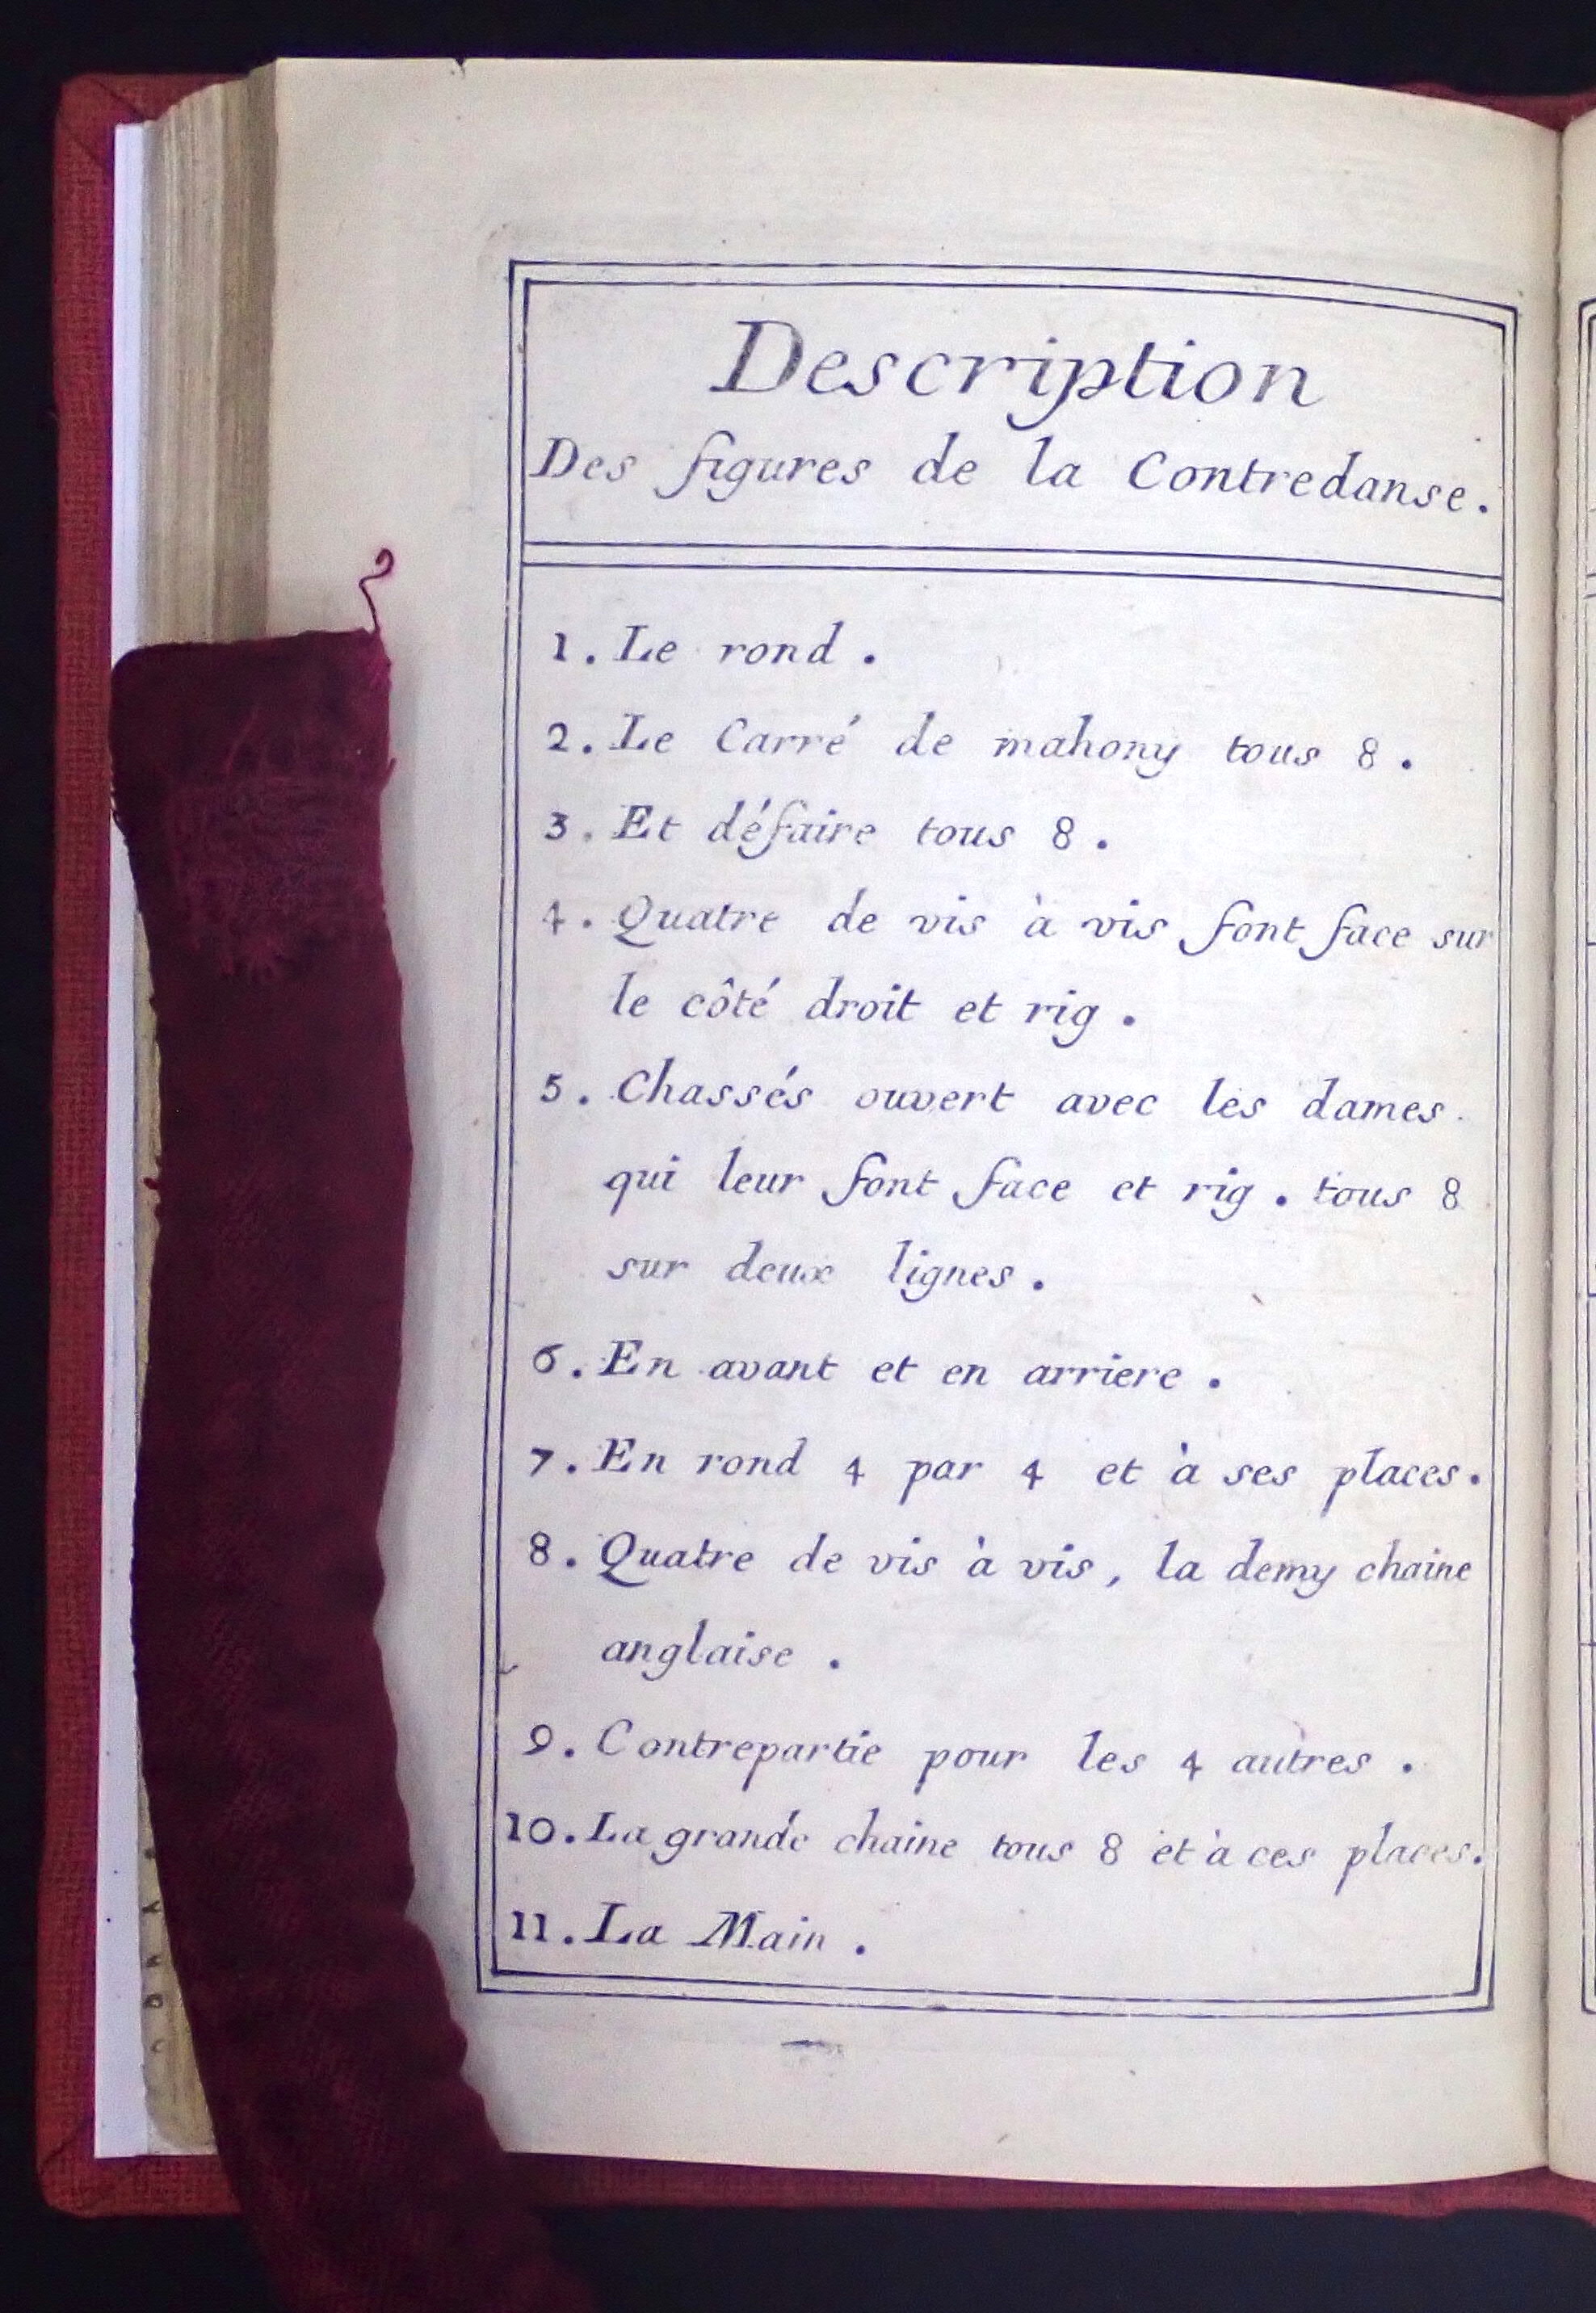 Description
Des figures de la Contredanse.
1. Le rond.
2. Le Carré de mahony tous 8.
3. Et défaire tous 8.
4. Quatre de vis à vis font face sur
le côté droit et rig.
5. Chassés ouvert avec les dames
qui leur font face et rig. tous 8
sur deux lignes.
6. En avant et en arriere.
7. En rond 4 par 4 et à ses places.
8. Quatre de vis à vis, la demy chaine
anglaise.
9. Contrepartie pour les 4 autres.
10. La grande chaine tous 8 et à ces places.
11. La Main.